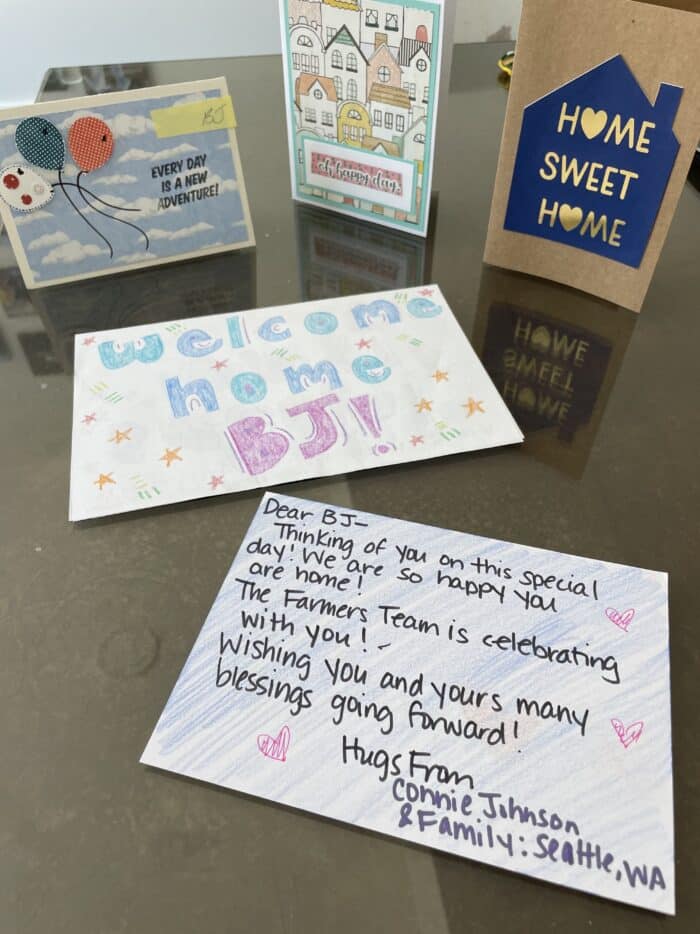 BJ
EVERY DAY
IS A NEW
ADVENTURE!
oh happy day
HOME
SWEET
HOME
Welcome
home
BJ!
Dear BJ-
Thinking of you on this special
day! We are so happy you
are home!
The Farmers Team is celebrating
with you!
Wishing you and yours many
blessings going forward!
Hugs From
Connie Johnson
& Family: Seattle, WA